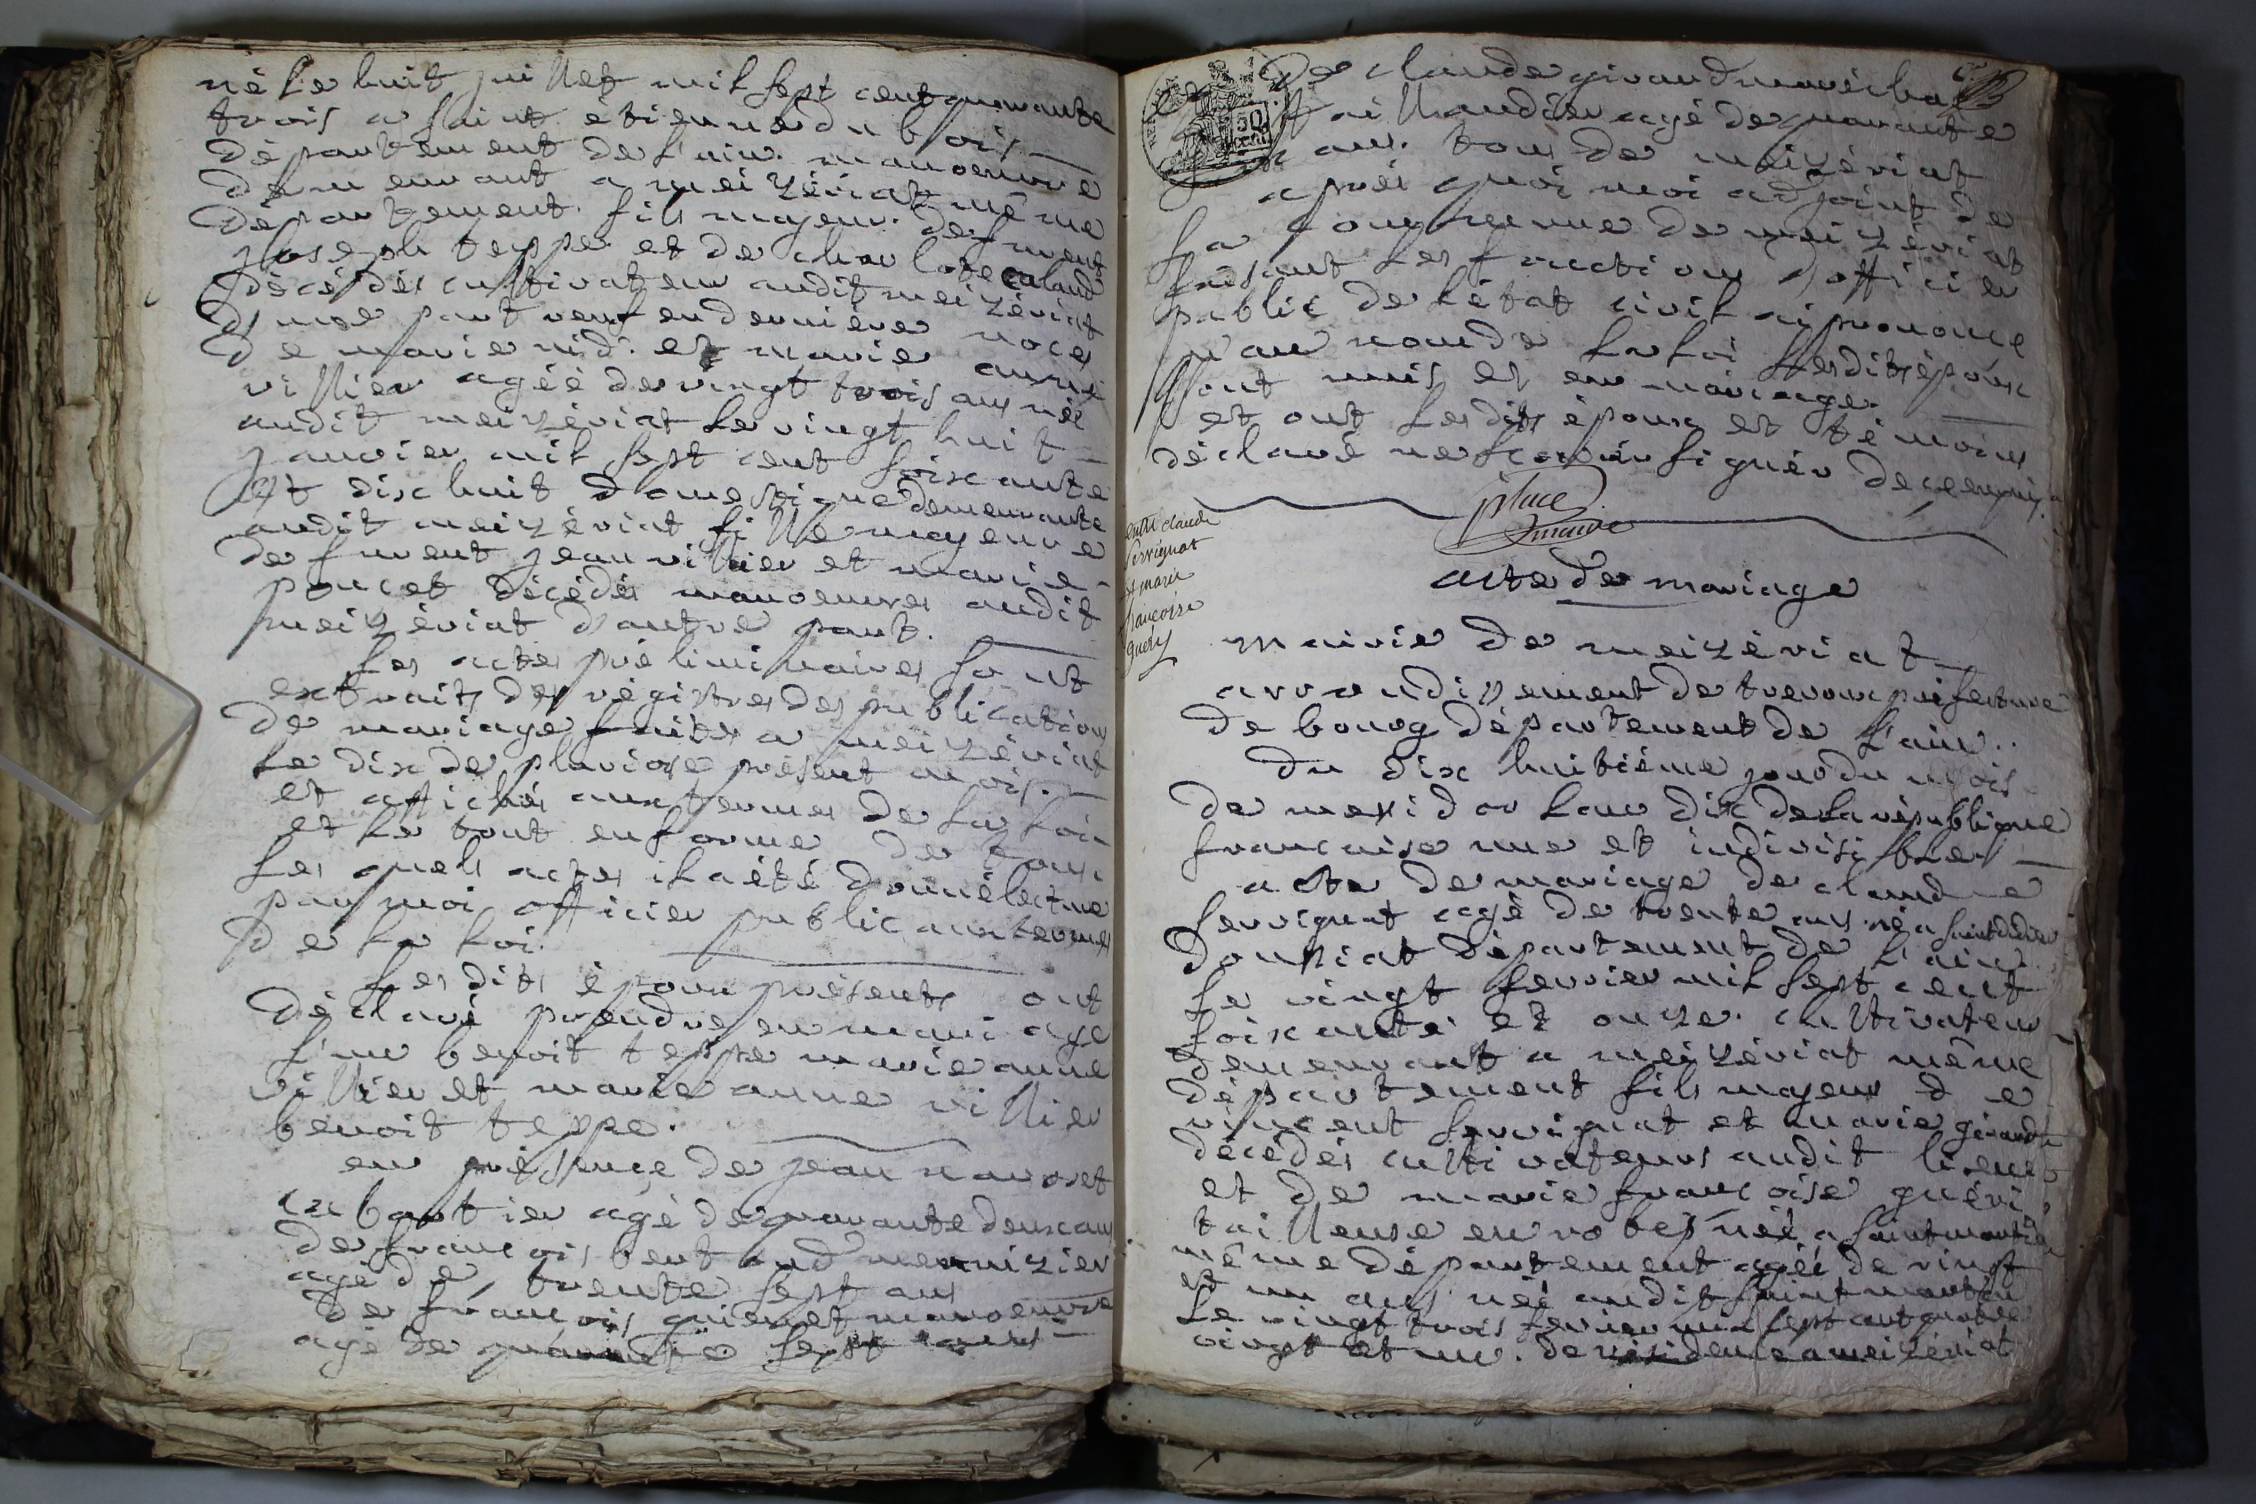 né le huit juillet mil sept cent quarante
trois a saint étienne du bois
département de l'ain. manoeuvre
demeurant a meizériat même
département. fils majeur. de feuent
joseph teppe et de charlote caland
décédés cultivateur audit meizériat
d'une part veuf en dernière noces
de marie nid. et marie anne
villier agéé de vingt trois ans néé
audit meizériat le vingt huit
janvier mil sept cent soixante
et dixhuit domestique demeurante
audit meizériat fille mayeure
de feuent jean villier et marie
poncet décédés manoeuvres audit
meizériat d'autre part.
les actes préliminaires sont
extraits des régistres des publication
de mariage faites a meizériat
le dix de pluviose présent mois.
et affichés aux termes de la loi
et le tout en forme de tous
les quels actes il a été donné lecture
par moi officier public aux termes
de la loi.
les dits époux présents ont
déclaré prendre en mariage
l'un benoit teppe marie anne
villier et marie anne villier
benoit teppe.
en présence de jean navoret
cabartier agé de quarante deux ans
de francois bertaud menuizier
agé de trente sept ans
de francois quienet manoeuvre
agé de quarante sept ans
De claude giraud maréchal
taillandier agé de quarante
ans. tous de meizériat
aprèi quoi moi adjoint de
la commune de meizériat
faisant les fonctions d'officier
public de l'état civil ai prononcé
qu'au nom de la loi lesdits époux
sont unis en mariage.
et ont lesdits époux et témoins
déclaré ne scavoir signér de ce enquis
place
maire
entre claude
servignat
et marie
francoise
guery
acte de mariage
mairie de meizériat
arrondissement de trevoux préfecture
de bourg département de l'ain..
du dix huitiéme jour du mois
de messidor l'an dix de la république
francaise une et indivisible
acte de mariage de claude
servignat agé de trente ans. né a saint didier
doussiat département de l'ain.
le vingt fevrier mil sept cent
soixante et onze. cultivateur
demeurant a meizériat même
département fils majeur de
vincent servignat et marie girandet
décédés cultivateurs audit lieu
et de marie francoise guéri
tailleuse en robes néé a saint martin
même département agéé de vingt
et un ans néé audit saint martin
le vingt trois fevrier mil sept cent quatre
vingt et un. de résidence a meizériat